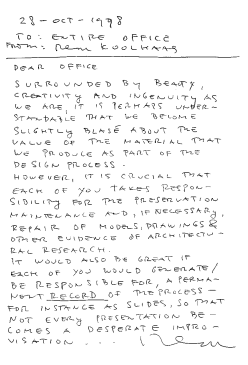 28-OCT-1998
TO: ENTIRE OFFICE
FROM: Rem KOOLHAAS
DEAR OFFICE
SURROUNDED BY BEAUTY,
CREATIVITY AND INGENUITY AS
WE ARE, IT IS PERHAPS UNDER-
STANDABLE THAT WE BECOME
SLIGHTLY BLASÉ ABOUT THE
VALUE OF THE MATERIAL THAT
WE PRODUCE AS PART OF THE
DESIGN PROCESS.
HOWEVER, IT IS CRUCIAL THAT
EACH OF YOU TAKES RESPON-
SIBILITY FOR THE PRESERVATION
MAINTENANCE AND, IF NECESSARY,
REPAIR OF MODELS, DRAWINGS &
OTHER EVIDENCE OF ARCHITECTU-
RAL RESEARCH.
IT WOULD ALSO BE GREAT IF
EACH OF YOU WOULD GENERATE/
BE RESPONSIBLE FOR, A PERMA-
NENT RECORD OF THE PROCESS-
FOR INSTANCE AS SLIDES, SO THAT
NOT EVERY PRESENTATION BE-
COMES A DESPERATE IMPRO-
VISATION... Rem